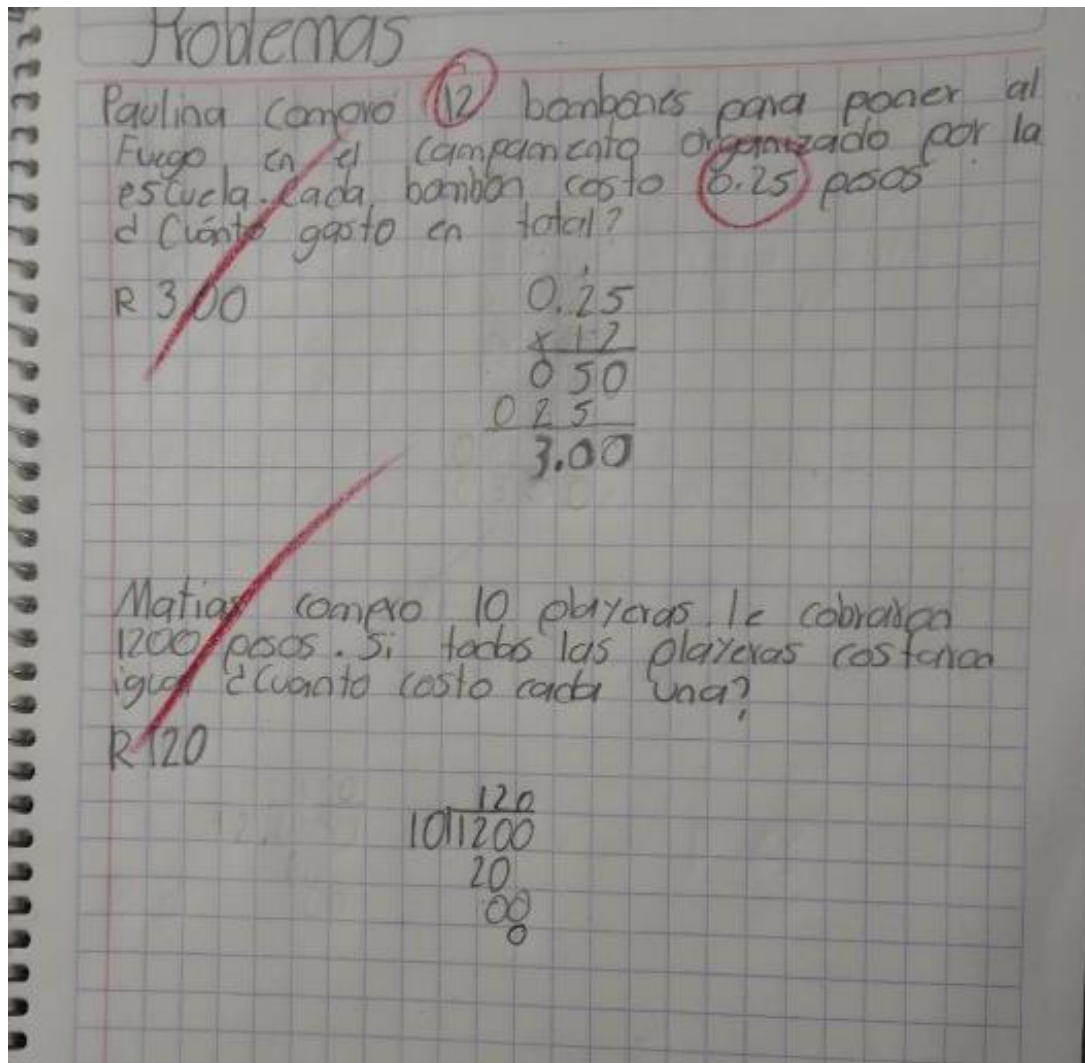 Problemas
Paulina compro 12 bombones para poner al
Fuego en el campamento organizado por la
escuela. Cada bombon costo 0.25 pesos
¿Cuánto gasto en total?
R 3.00
0.25
x 12
0 50
0 2 5
3.00
Matias compro 10 playeras. le cobraron
1200 pesos. Si todas las playeras costaron
igual ¿Cuanto costo cada una?
R 120
120
10 1200
20
00
0